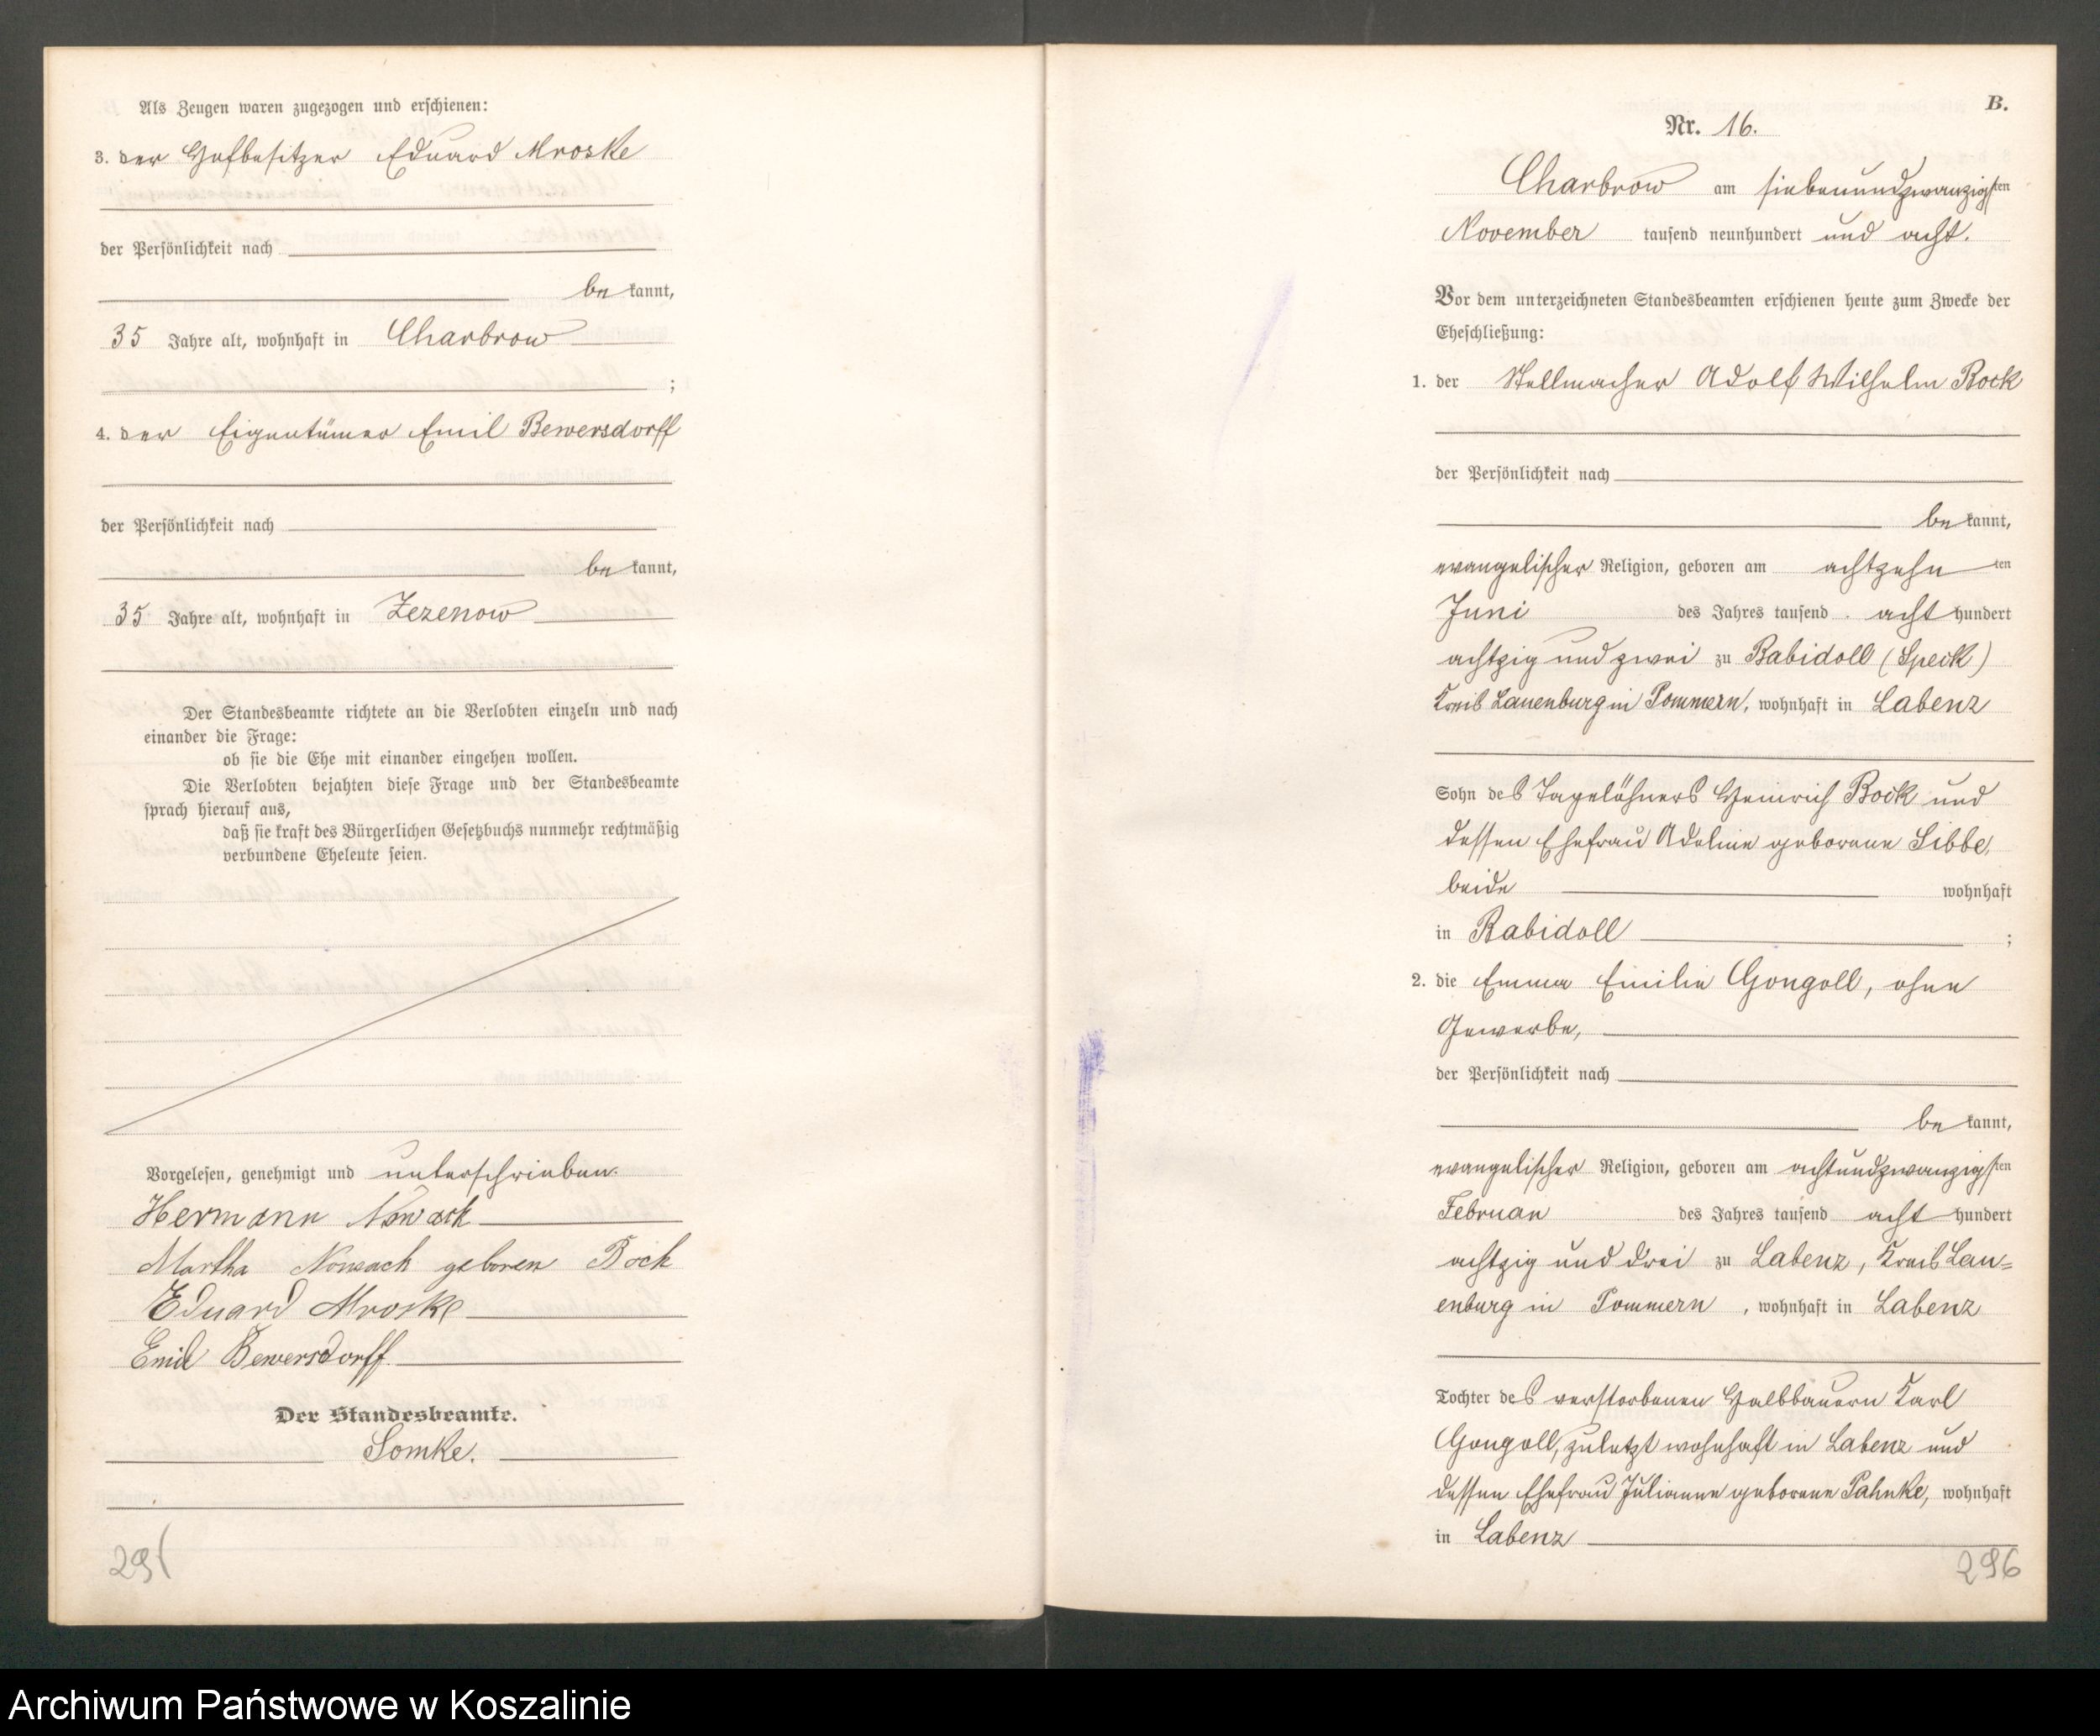 Als Zeugen waren zugezogen und erschienen:
3. der Hofbesitzer Eduard Mroske
der Persönlichkeit nach
be kannt,
35 Jahre alt, wohnhaft in Charbrow
;
4. der Eigentümer Emil Bewersdorff
der Persönlichkeit nach
be kannt,
35 Jahre alt, wohnhaft in Zezenow
Der Standesbeamte richtete an die Verlobten einzeln und nach
einander die Frage:
ob sie die Ehe mit einander eingehen wollen.
Die Verlobten bejahten diese Frage und der Standesbeamte
sprach hierauf aus,
daß sie kraft des Bürgerlichen Gesetzbuchs nunmehr rechtmäßig
verbundene Eheleute seien.
Vorgelesen, genehmigt und unterschrieben.
Hermann Nowack
Martha Nowack geboren Bock
Eduard Mroske
Emil Bewersdorff.
Der Standesbeamte.
Somke.
B.
Nr. 16.
Charbrow am siebenundzwanzigsten
November tausend neunhundert und acht.
Vor dem unterzeichneten Standesbeamten erschienen heute zum Zwecke der
Eheschließung:
1. der Stellmacher Adolf Wilhelm Bock
der Persönlichkeit nach
be kannt,
evangelischer Religion, geboren am achtzehn ten
Juni des Jahres tausend acht hundert
achtzig und zwei zu Babidoll (Speck)
Kreis Lauenburg in Pommern, wohnhaft in Labenz
Sohn des Tagelöhners Heinrich Bock und
dessen Ehefrau Adeline geborene Libbe,
beide wohnhaft
in Rabidoll ;
2. die Emma Emilie Gongoll, ohne
Gewerbe,
der Persönlichkeit nach
be kannt,
evangelischer Religion, geboren am achtundzwanzigsten
Februar des Jahres tausend acht hundert
achtzig und drei zu Labenz, Kreis Lau=
enburg in Pommern, wohnhaft in Labenz
Tochter des verstorbenen Halbbauern Karl
Gongoll, zuletzt wohnhaft in Labenz und
dessen Ehefrau Julianne geborene Pahnke, wohnhaft
in Labenz
296
Archiwum Państwowe w Koszalinie